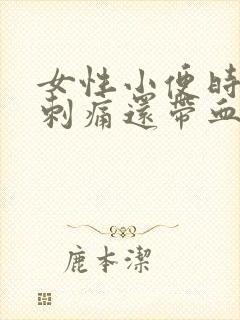 女性小便時
刺痛還帶血
鹿本潔